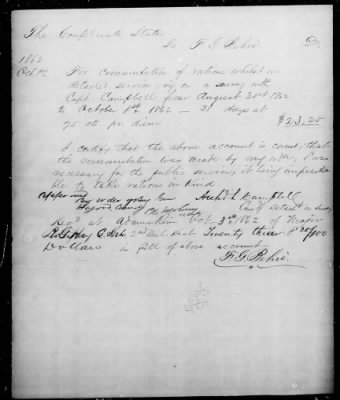 The Confederate States
To F G Dr.
1862
Oct 1st For commutation of rations whilst on
detailed service on a survey with
Capt. Campbell from August 31st 1862
to October 1st 1862 — 31 days at
75 cts pr. diem $23.25
I certify that the above account is correct, that
the commutation was made by my order, & was
necessary for the public service, it being impractica
ble to take rations in kind
By order of Gen Archd. L Campbell
Rec'd at Oct 3rd 1862 of Major
2nd Mil. Dist. Twenty three & 25/100
Dollars in full of above account
F. G.